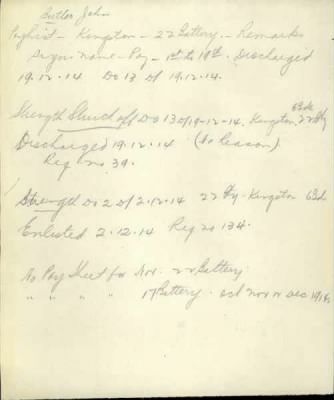 Butler John
Paylist - Kingston - 22 Battery. - Remarks
name - Pay - 1st to 19th. Discharged
19.12.14 Do 13 of 19.12.14.
Strength Struck off Do 13 of 19-12-14. Kingston, 22 Bty
Discharged 19.12.14 (no reason)
Reg no 39.
Strength Do 2 of 2.12.14 22 Bty. Kingston
Enlisted 2.12.14 Reg no 134.
No Pay Sheet for Nov. 22 Battery
" " " " 17 Battery. Oct Nov or Dec 1914